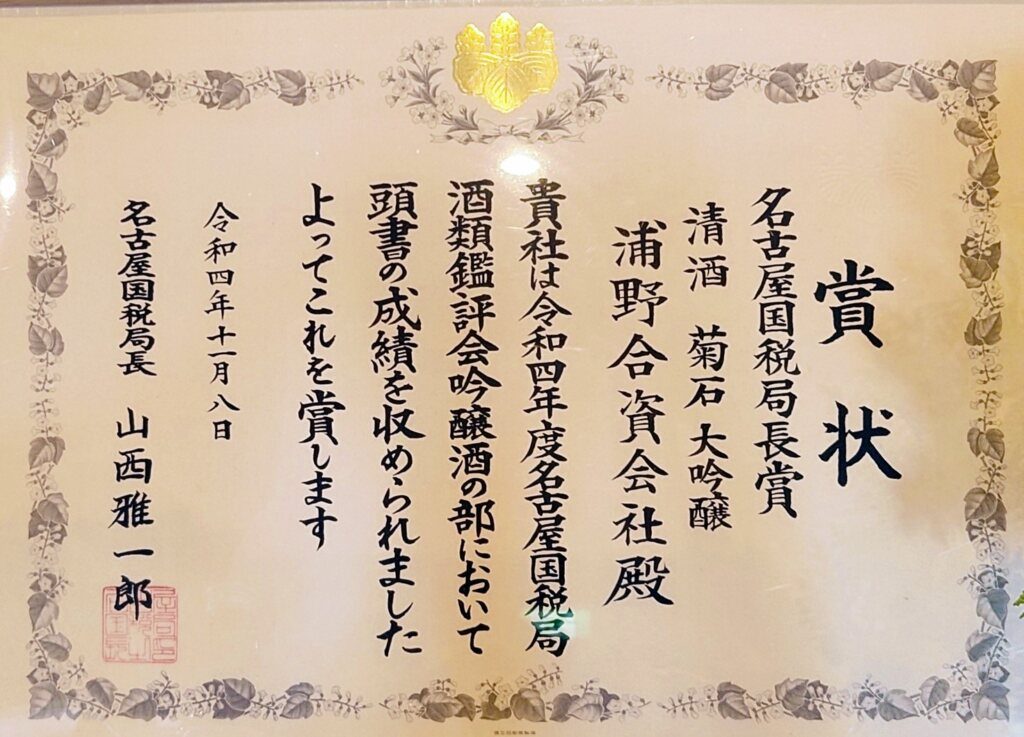 賞状
名古屋国税局長賞
清酒 菊石 大吟醸
浦野合資会社殿
貴社は令和四年度名古屋国税局
酒類鑑評会吟醸酒の部において
頭書の成績を収められました
よってこれを賞します
令和四年十一月八日
名古屋国税局長 山西雅一郎